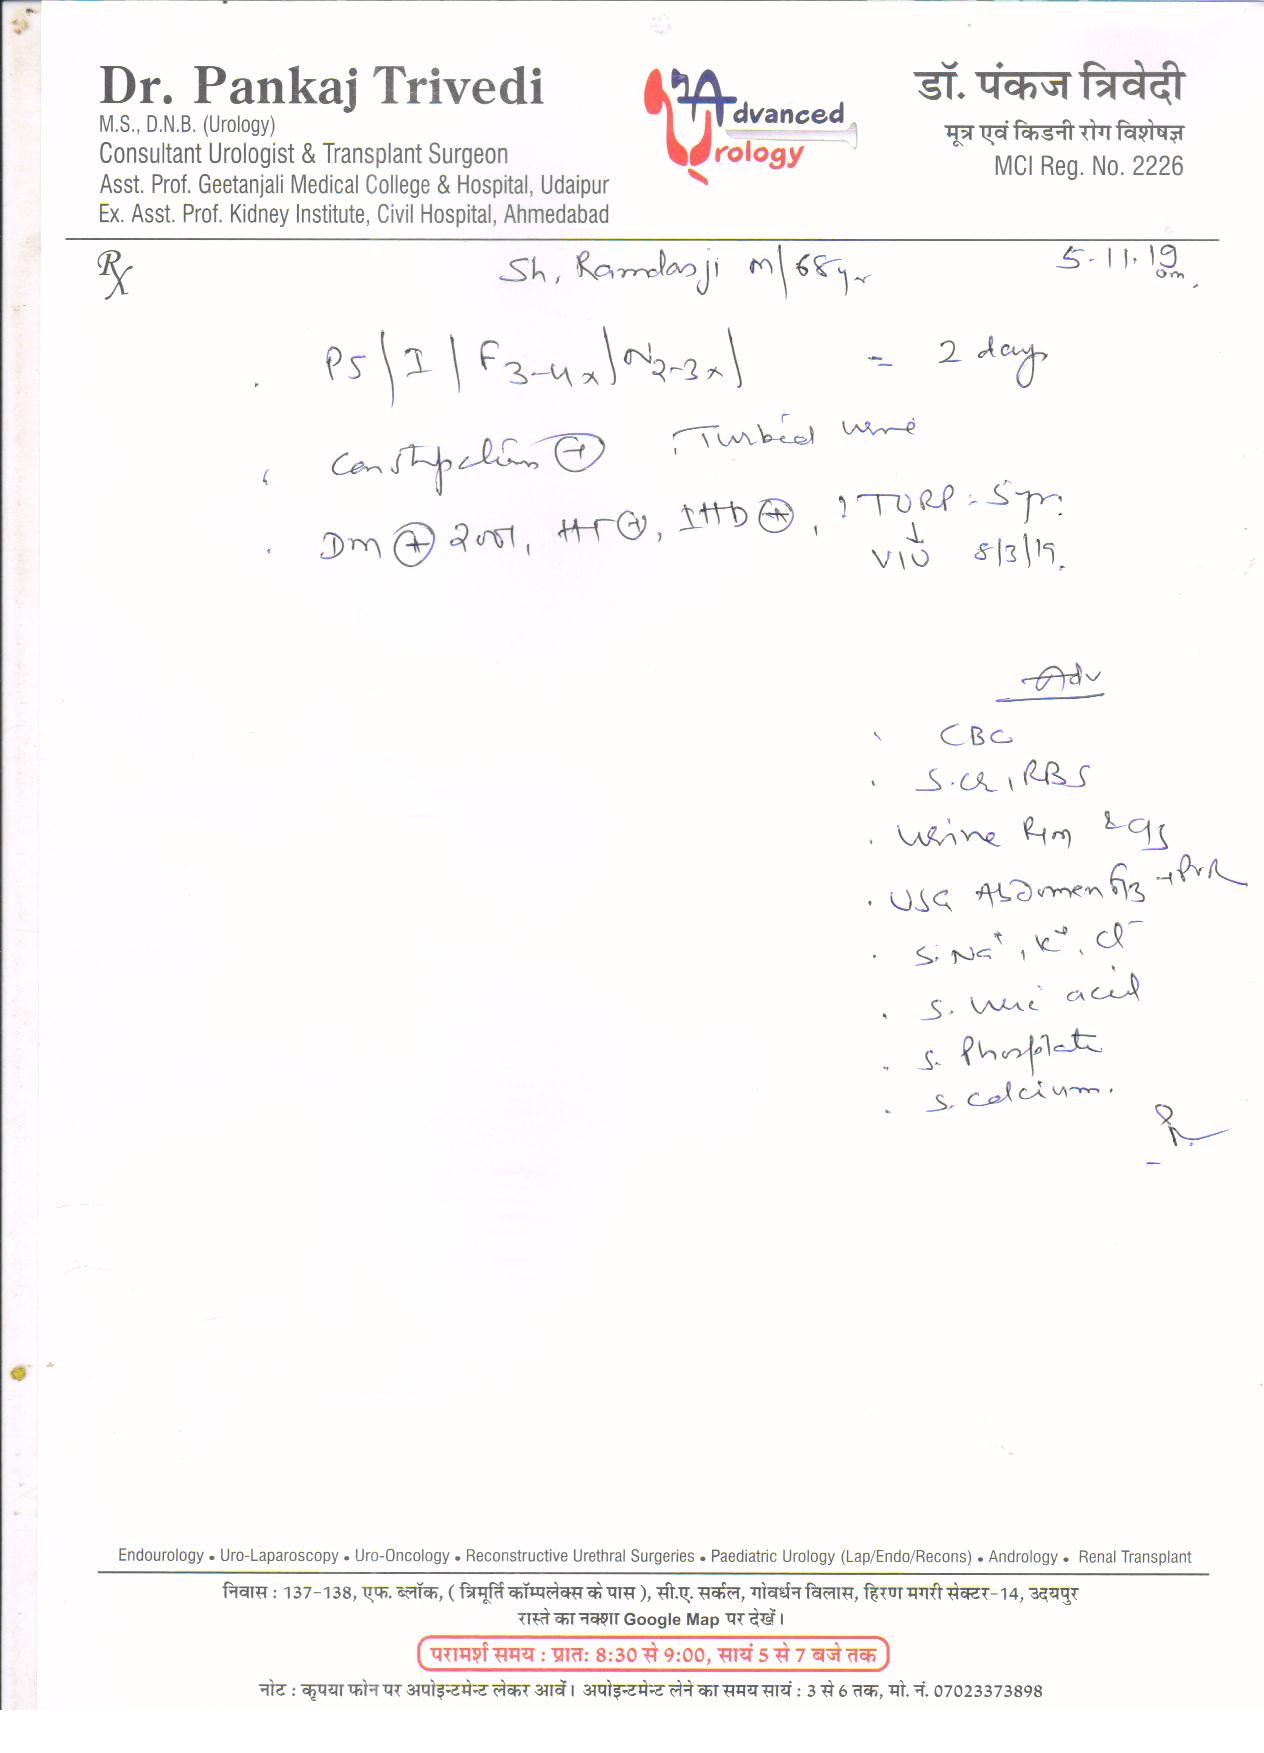 Dr. Pankaj Trivedi
M.S., D.N.B. (Urology)
Consultant Urologist & Transplant Surgeon
Asst. Prof. Geetanjali Medical College & Hospital, Udaipur
Ex. Asst. Prof. Kidney Institute, Civil Hospital, Ahmedabad
Advanced
Urology
डॉ. पंकज त्रिवेदी
मूत्र एवं किडनी रोग विशेषज्ञ
MCI Reg. No. 2226
Rx Sh, Ramdasji M/68yr 5.11.19
PS/I/F3-4x/N2-3x/ = 2 days
Constipation ⊕ Turbid urine
DM ⊕ 2001, HT ⊕, IHD ⊕, TURP - 5 yr.
↓
VIU 8/3/19.
Adv
CBC
S.Cr, RBS
Urine R/M & C/S
USG Abdomen +PVR
S. Na+, K+, Cl-
S. Uric acid
S. Phosphate
S. Calcium.
Endourology • Uro-Laparoscopy • Uro-Oncology • Reconstructive Urethral Surgeries • Paediatric Urology (Lap/Endo/Recons) • Andrology • Renal Transplant
निवास : 137-138, एफ. ब्लॉक, ( त्रिमूर्ति कॉम्पलेक्स के पास ), सी.ए. सर्कल, गोवर्धन विलास, हिरण मगरी सेक्टर-14, उदयपुर
रास्ते का नक्शा Google Map पर देखें।
परामर्श समय : प्रात: 8:30 से 9:00, सायं 5 से 7 बजे तक
नोट : कृपया फोन पर अपोइन्टमेन्ट लेकर आवें। अपोइन्टमेन्ट लेने का समय सायं : 3 से 6 तक, मो. नं. 07023373898